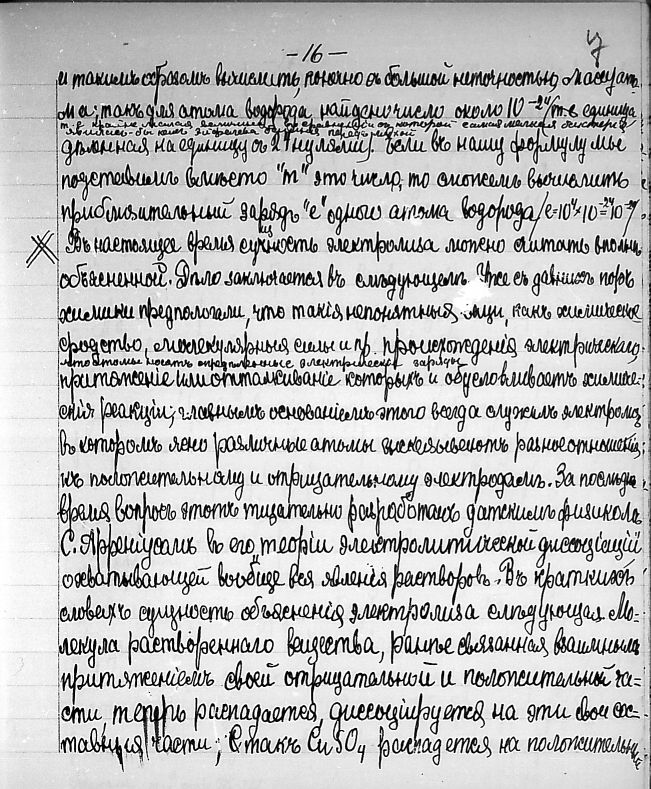 -16-
7
и такимъ образомъ вычислить, конечно съ большой неточностью, массу ато-
ма: такъ для атома водорода, найдено число около 10⁻²⁴/т.е. единица
т.е. крайне малая величина, въ сравненіи съ которой самая мелкая бактерія
явилась-бы передъ песчинкой
дѣленная на единицу съ 24 нулями/. Если въ нашу формулу мы
подставимъ вмѣсто "m" это число, то сможемъ вычислить
приблизительный зарядъ "е" одного атома водорода /е=10⁴×10⁻²⁴=10⁻²⁰/
Въ настоящее время сущность электролиза можно считать вполнѣ
объясненной. Дѣло заключается въ слѣдующемъ. Уже съ давнихъ поръ
химики предпологали, что такія непонятныя вещи, какъ химическое
сродство, молекулярныя силы и пр. происхожденія электрическаго,
что атомы носятъ опредѣленные электрическіе заряды
притяженіе или отталкиваніе которыхъ и обусловливаетъ химиче-
скія реакціи; главнымъ основаніемъ этого всегда служилъ электролизъ
въ которомъ ясно различные атомы высказываютъ разное отношеніе
къ положительному и отрицательному электродамъ. За послѣднее
время вопросъ этотъ тщательно разработанъ датскимъ физикомъ
С. Арреніусомъ въ его „теоріи электролитической диссоціаціи"
охватывающей вообще вся явленія растворовъ. Въ краткихъ
словахъ сущность объясненія электролиза слѣдующая. Мо-
лекула растворенного вещества, ранѣе связанная взаимнымъ
притяженіемъ своей отрицательной и положительной ча-
сти, теперь распадается, диссоціируется на эти свои сос-
тавныя части; такъ CuSO₄ распадется на положительный